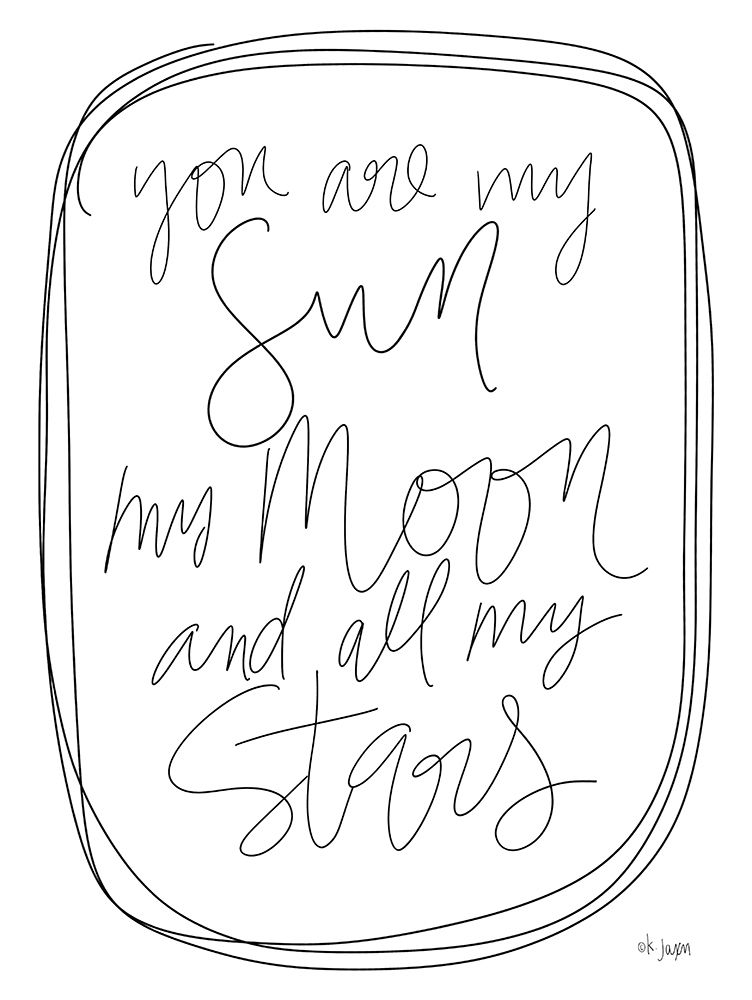 you are my
Sun
my Moon
and all my
Stars
©K. Jaxn